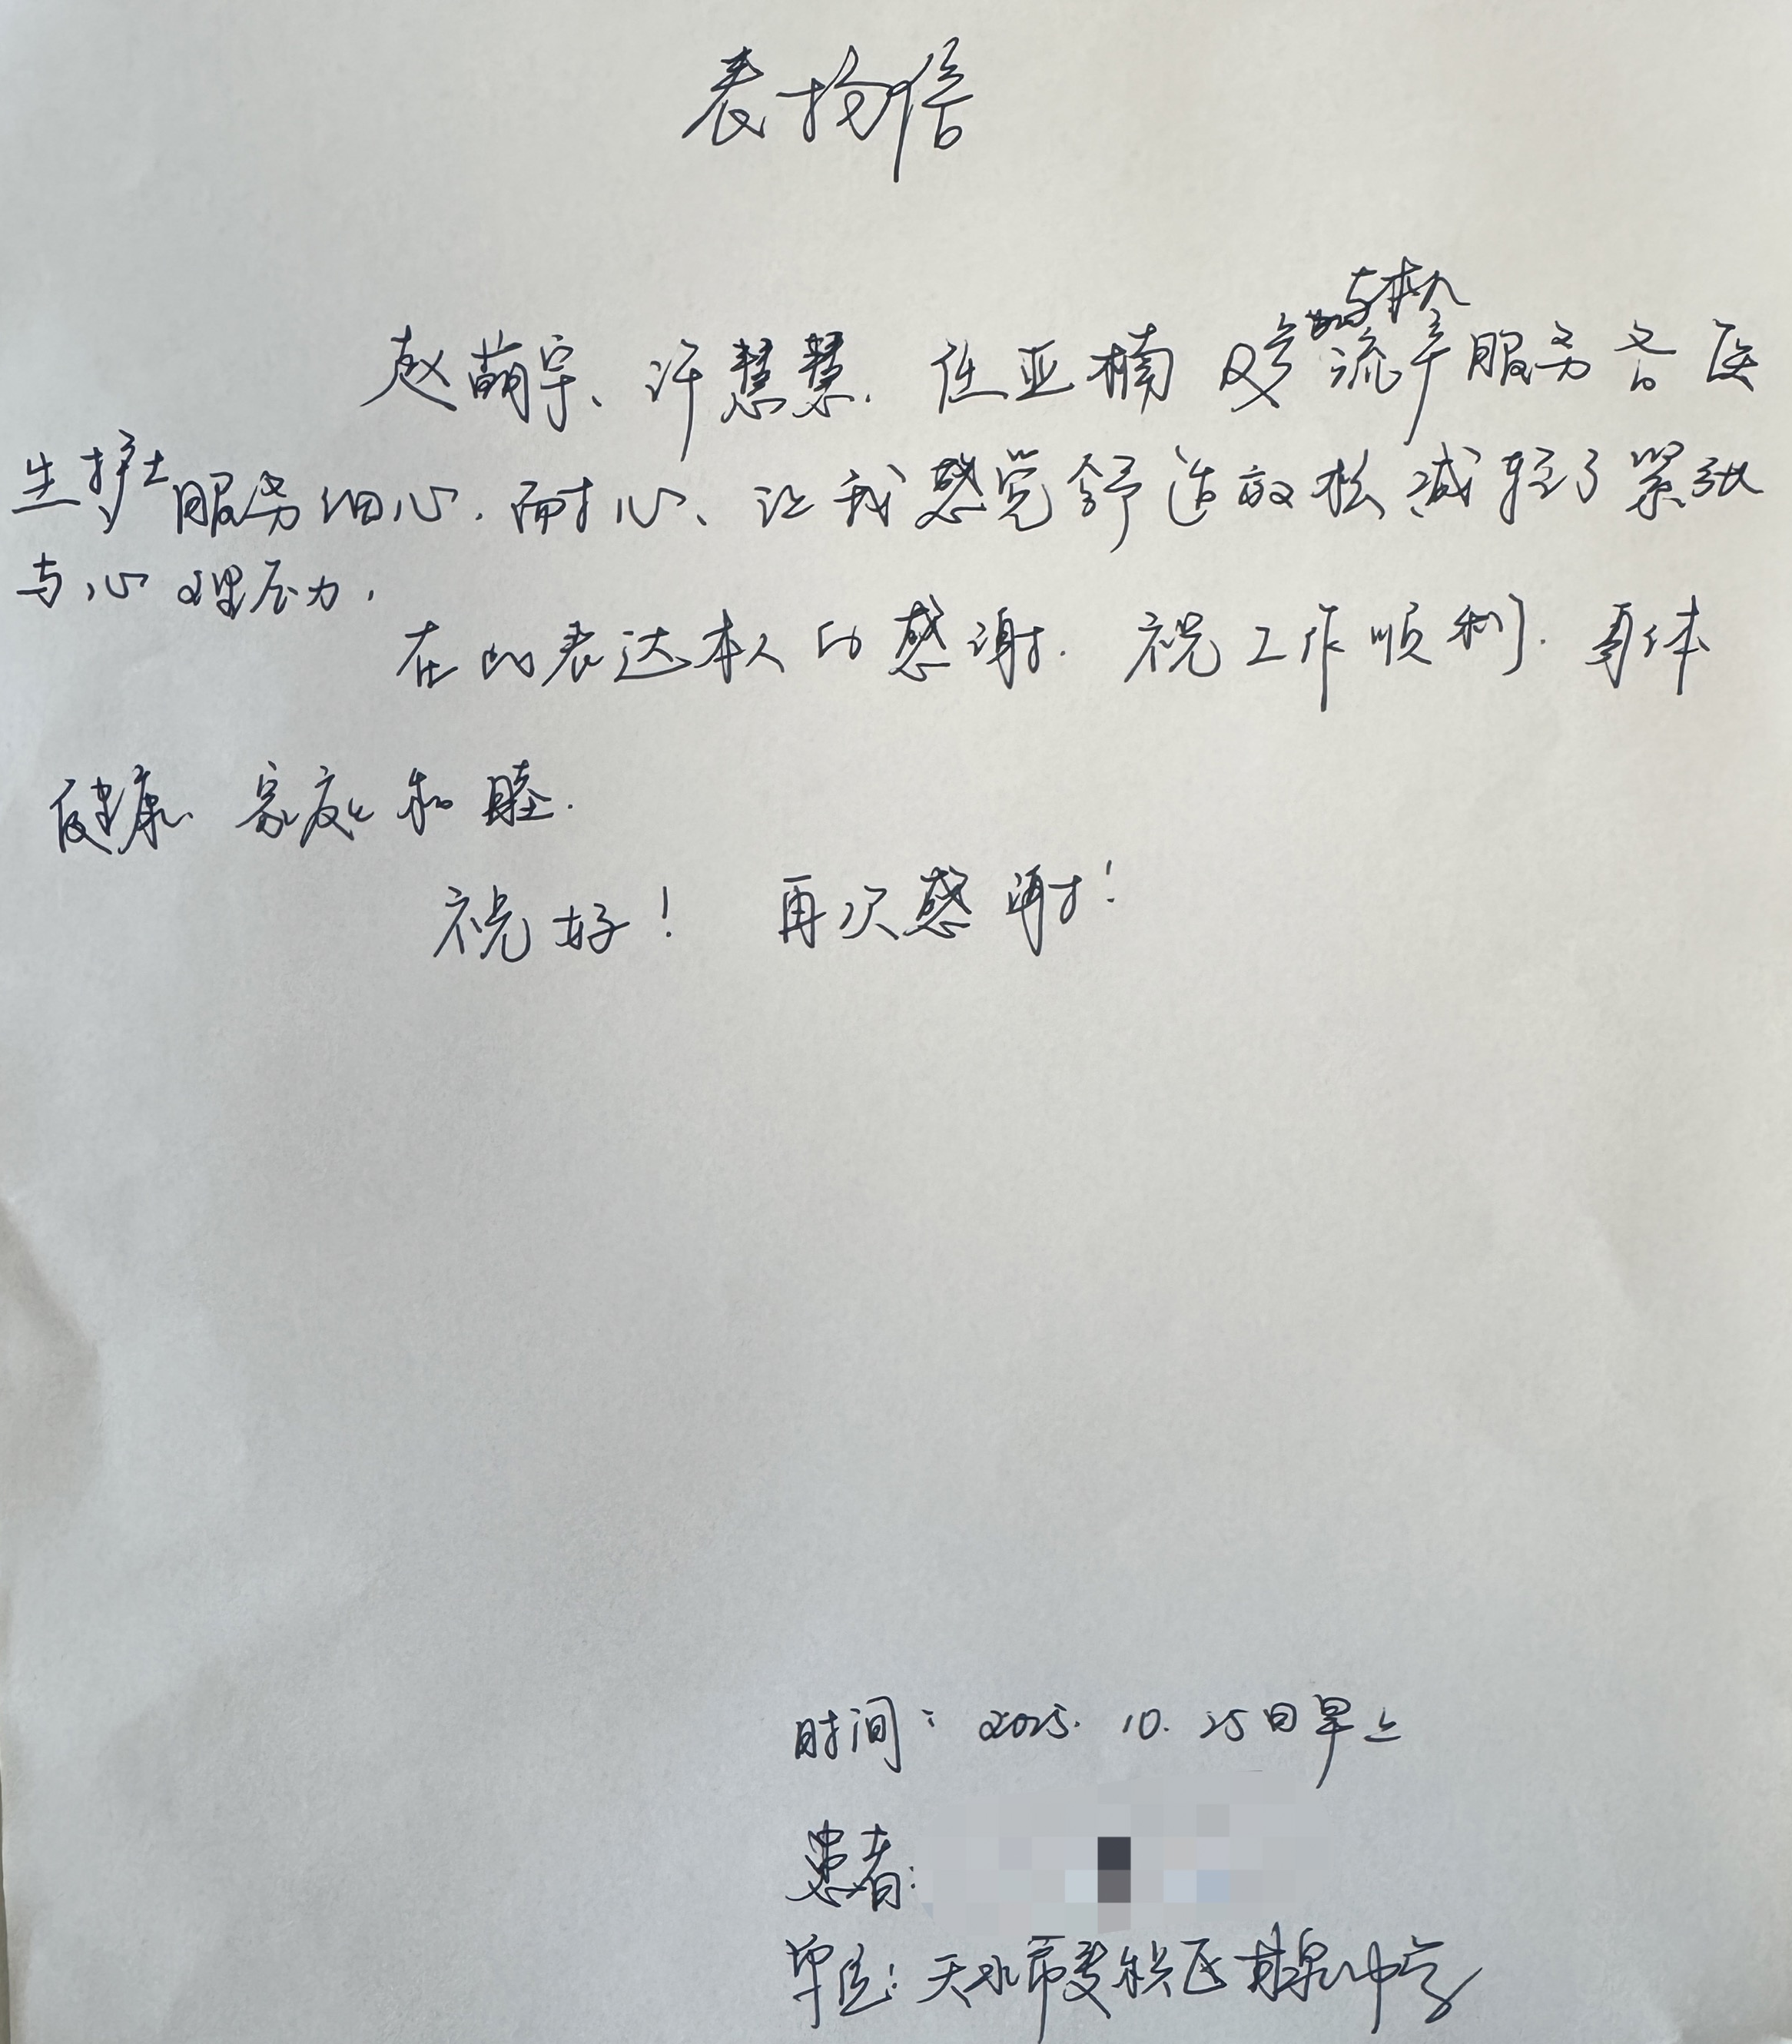 表扬信
与机
赵萌宇、许慧慧、任亚楠 及 流产服务各医
生护士服务细心、耐心、让我感觉舒适放松减轻了紧张
与心理压力，
在此表达本人的感谢. 祝工作顺利. 身体
健康、家庭和睦.
祝好！ 再次感谢！
时间：2025. 10. 25日早上
患者：
单位：天水市麦积区甘泉中学